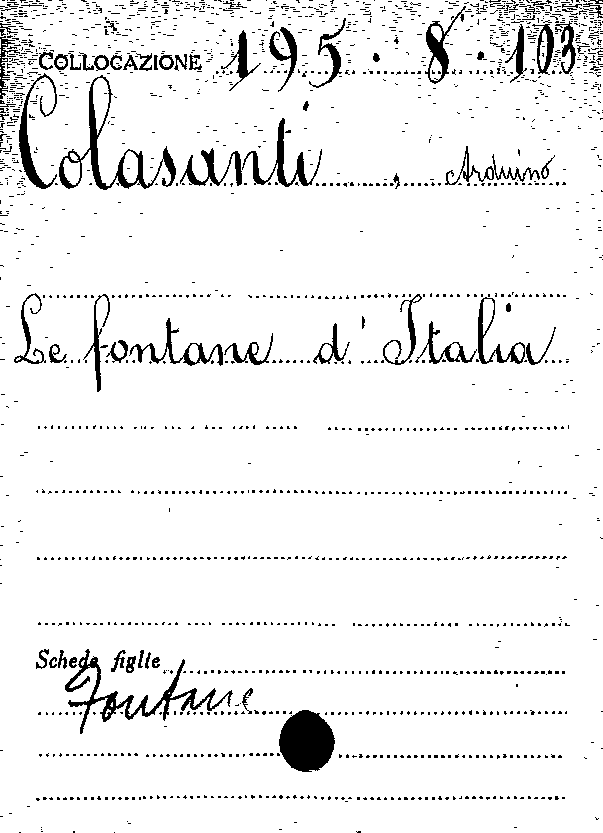 COLLOCAZIONE 195 · 8 · 103
Colasanti , Arduino
Le fontane d'Italia
Schede figlie
Fontane